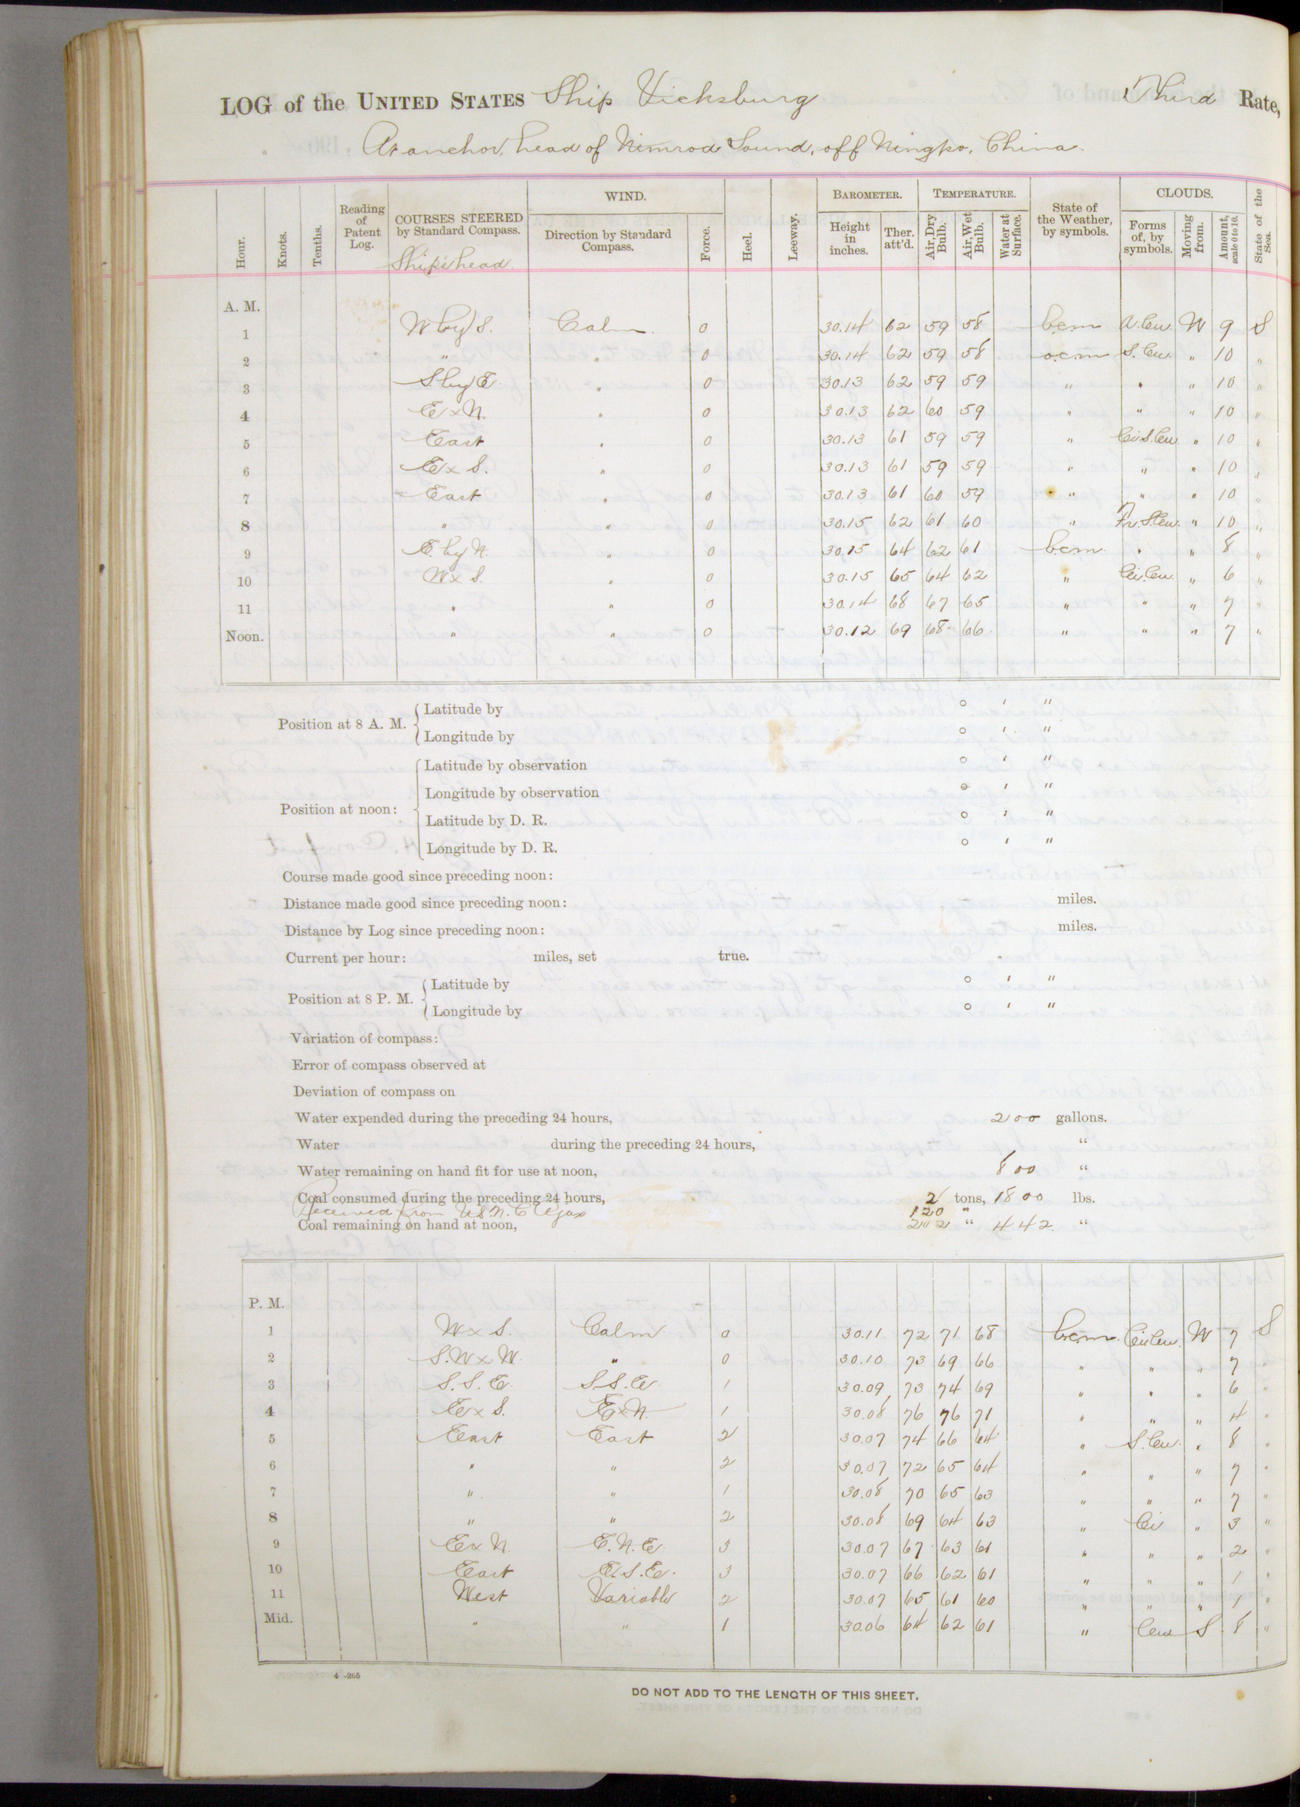 LOG of the UNITED STATES Ship Vicksburg Third Rate,
At anchor, head of Nimrod Sound, off Ningpo, China.
Hour. Knots. Tenths. Reading of Patent Log. COURSES STEERED by Standard Compass. WIND. Direction by Standard Compass. Force. Heel. Leeway. BAROMETER. Height in inches. Ther. att'd. TEMPERATURE. Air, Dry Bulb. Air, Wet Bulb. Water at Surface. State of the Weather, by symbols. CLOUDS. Forms of, by symbols. Moving from. Amount, scale 0 to 10. State of the Sea.
Ship's head
A. M.
1 W by S. Calm 0 30.14 62 59 58 b.c.m A.Cu. W 9 S
2 " " 0 30.14 62 59 58 o.c.m S.Cu. " 10 "
3 S by E. " 0 30.13 62 59 59 " " " 10 "
4 E x N. " 0 30.13 62 60 59 " " " 10 "
5 East " 0 30.13 61 59 59 " Ci.S.Cu " 10 "
6 E x S. " 0 30.13 61 59 59 " " " 10 "
7 East " 0 30.13 61 60 59 " " " 10 "
8 " " 0 30.15 62 61 60 " Fr.S.Cu. " 10 "
9 E. by N. " 0 30.15 64 62 61 b.c.m. " " 8 "
10 W x S. " 0 30.15 65 64 62 " Ci.Cu. " 6 "
11 " " 0 30.14 68 67 65 " " " 7 "
Noon. " " 0 30.12 69 68 66 " " " 7 "
Position at 8 A. M. Latitude by ° ' "
Longitude by ° ' "
Position at noon: Latitude by observation ° ' "
Longitude by observation ° ' "
Latitude by D. R. ° ' "
Longitude by D. R. ° ' "
Course made good since preceding noon:
Distance made good since preceding noon: miles.
Distance by Log since preceding noon: miles.
Current per hour: miles, set true.
Position at 8 P. M. Latitude by ° ' "
Longitude by ° ' "
Variation of compass:
Error of compass observed at
Deviation of compass on
Water expended during the preceding 24 hours, 200 gallons.
Water during the preceding 24 hours, "
Water remaining on hand fit for use at noon, 800 "
Coal consumed during the preceding 24 hours, 2 tons, 1800 lbs.
Received from U.S.N.C Ajax 120 "
Coal remaining on hand at noon, 202 " 442 "
P. M.
1 W x S. Calm 0 30.11 72 71 68 b.c.m. Ci.Cu. W 7 S
2 S.W x W. " 0 30.10 73 69 66 " " " 7 "
3 S.S.E. S.S.E 1 30.09 73 74 69 " " " 6 "
4 E x S. E x N. 1 30.08 76 76 71 " " " 4 "
5 East East 2 30.07 74 66 64 " S.Cu. " 8 "
6 " " 2 30.07 72 65 64 " " " 7 "
7 " " 1 30.08 70 65 63 " " " 7 "
8 " " 2 30.08 69 64 63 " Ci " 3 "
9 E x N. E.N.E. 3 30.07 67 63 61 " " " 2 "
10 East E.S.E. 3 30.07 66 62 61 " " " 1 "
11 West Variable 2 30.07 65 61 60 " " " 1 "
Mid. " " 1 30.06 64 62 61 " Cu S 8 "
4—265
DO NOT ADD TO THE LENGTH OF THIS SHEET.